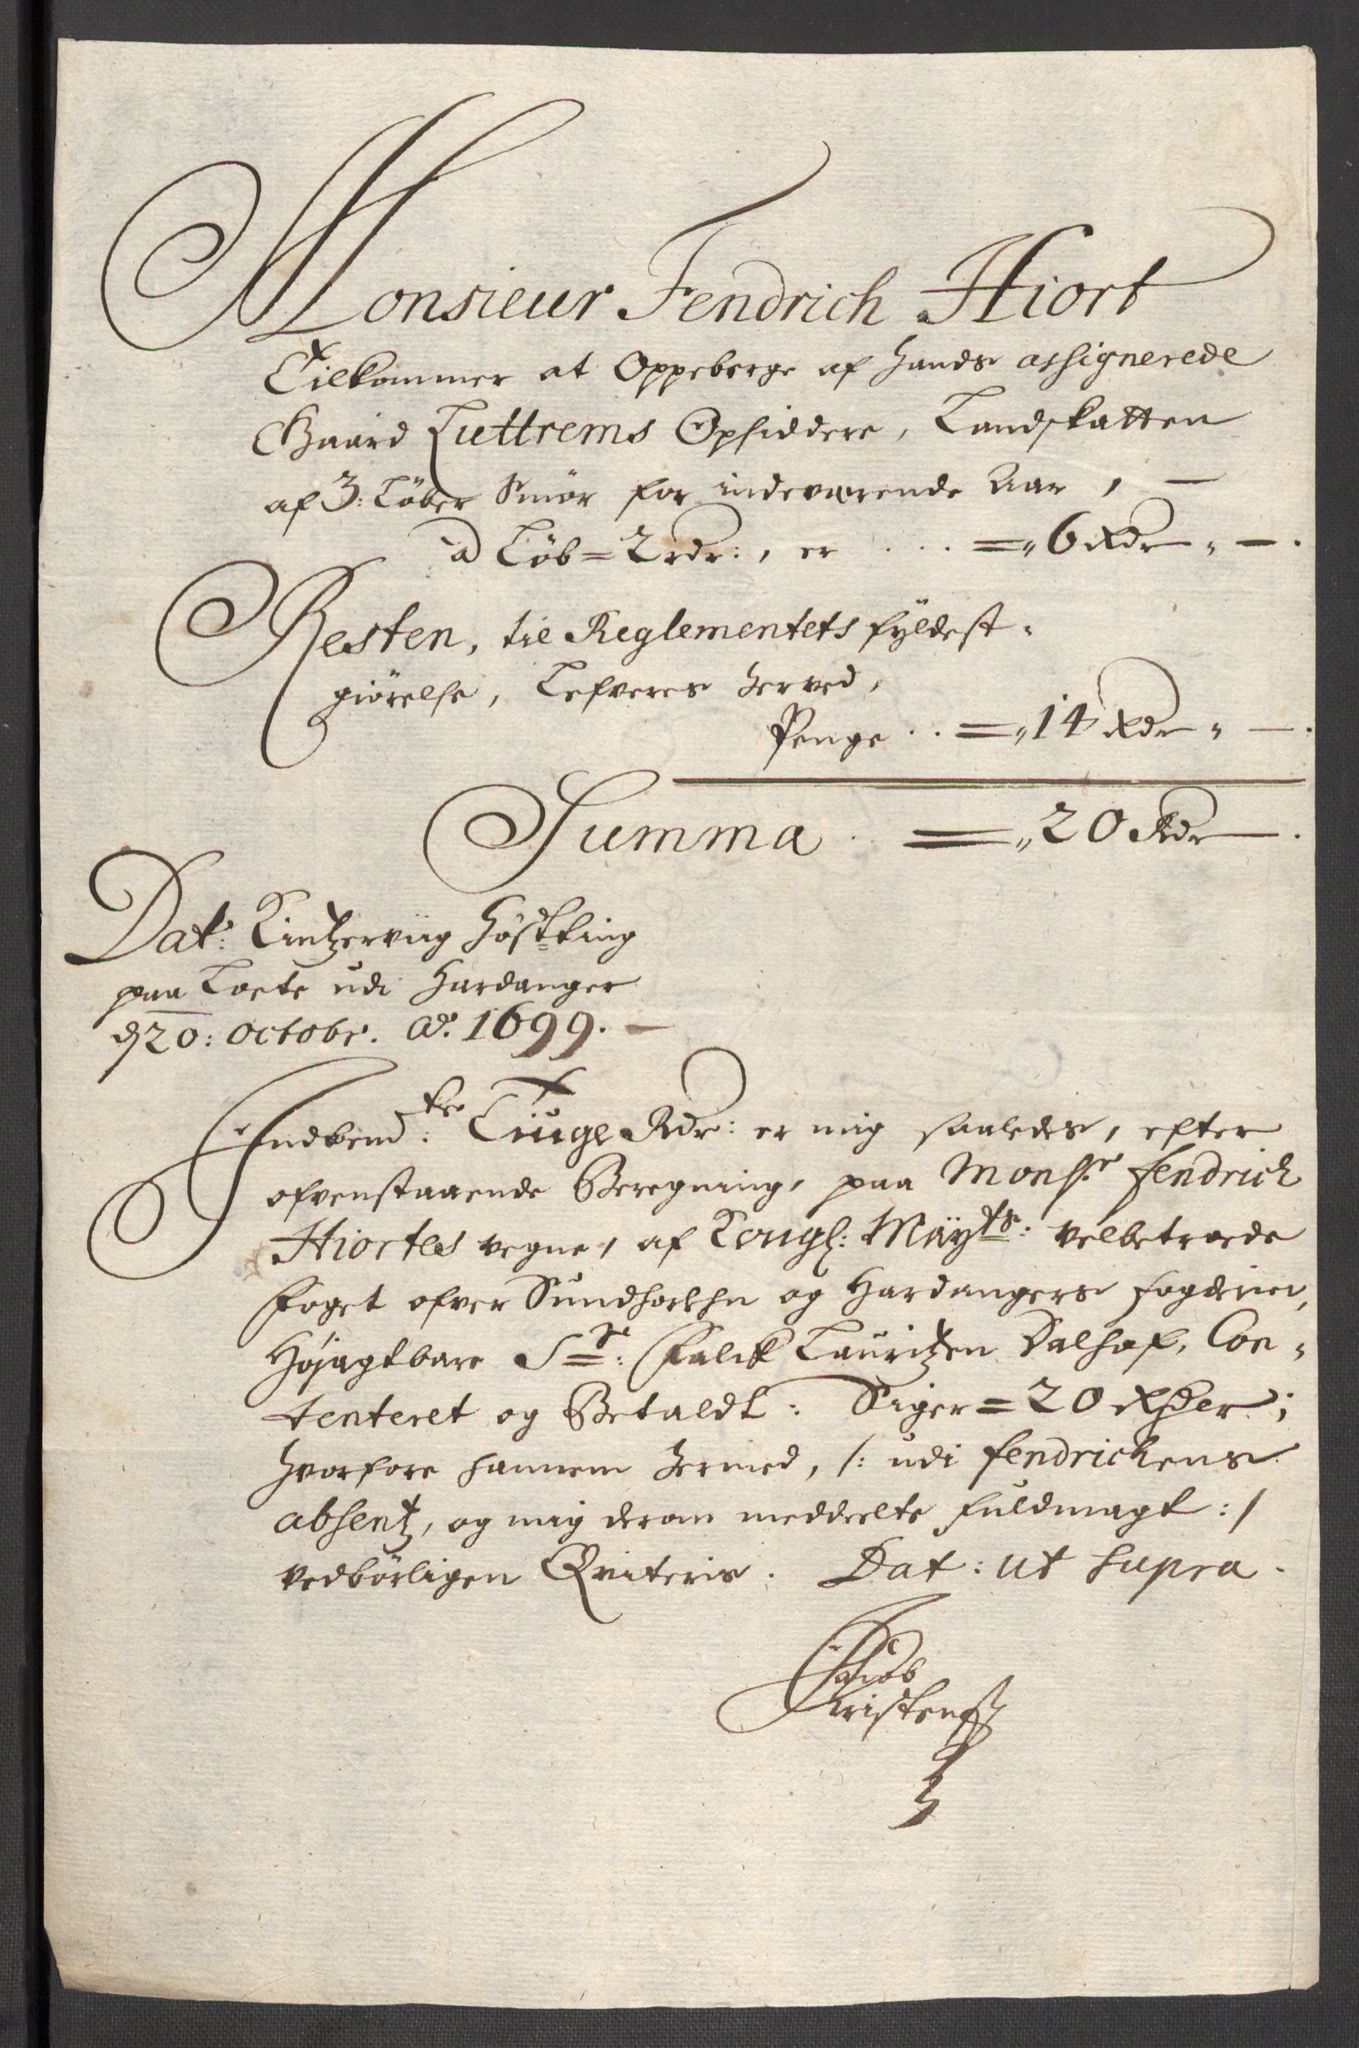 Monsieur Fendrich Hiort
Tilkommer at Oppeberge af hands assignerede
Gaard Luttrems Opsiddere, Landskatten
af 3: Løber Smør for indeværende Aar, —
a Løb = 2 rdr:, er . . . =„ 6 Rdr „ — .
Resten, til Reglementets fyldest-
giørelse, Lefveres herved,
Penge . . =„ 14 Rdr „ — .
Summa . =„ 20 Rdr — .
Dat: Kintzerviig Høstting
paa Loete udi Hardanger
d 20: octobr. Ao. 1699. —
Indbem:te Tiuge Rdr: er mig saaledes, efter
ofvenstaaende Beregning, paa Mons:r Fendrich
Hiortes vegne, af Kongl: Mayts: velbetroede
Foget ofver Sundhorlehn og Hardangers fogderier,
Højagtbare Sr: Falck Lauritzen Dalhof, Con-
tenteret og Betaldt: Siger = 20 Rdler;
hvorfore hannem hermed, /: udi fendrichens
absentz, og mig derom meddeelte fuldmagt :/
vedbørligen Qviteris. Dat: ut supra.
Jacob
Christens